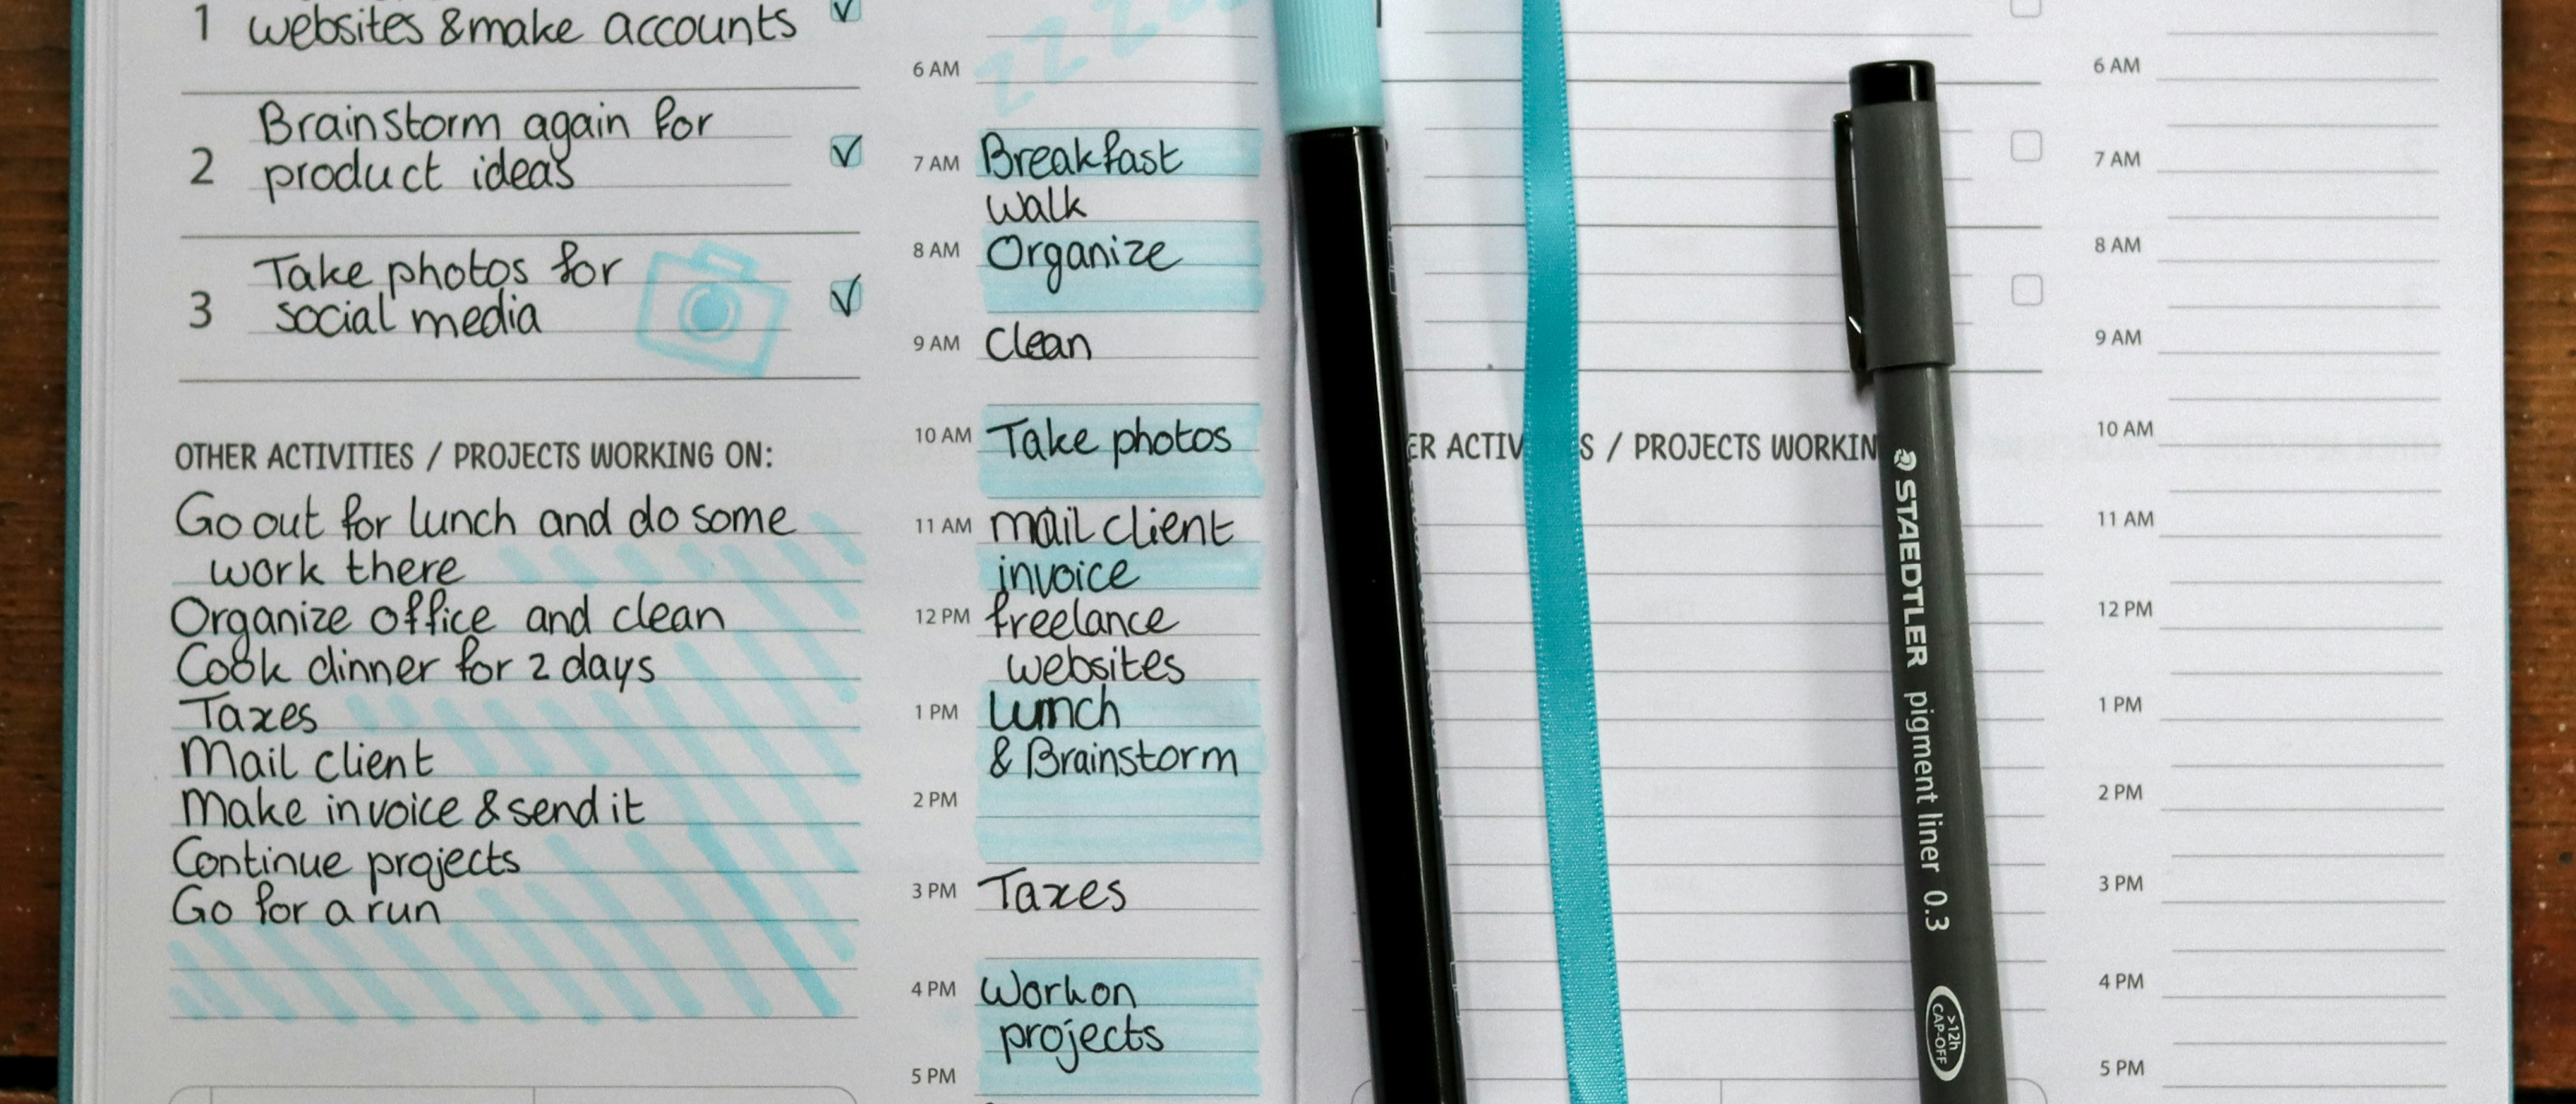 1 websites & make accounts
2 Brainstorm again for
product ideas
3 Take photos for
social media
OTHER ACTIVITIES / PROJECTS WORKING ON:
Go out for lunch and do some
work there
Organize office and clean
Cook dinner for 2 days
Taxes
Mail client
Make invoice & send it
Continue projects
Go for a run
zzzz
6 AM
7 AM Breakfast
walk
8 AM Organize
9 AM Clean
10 AM Take photos
11 AM mail client
invoice
12 PM freelance
websites
1 PM Lunch
& Brainstorm
2 PM
3 PM Taxes
4 PM Work on
projects
5 PM
ER ACTIV S / PROJECTS WORKIN
STAEDTLER pigment liner 0.3
>12h
CAP-OFF
6 AM
7 AM
8 AM
9 AM
10 AM
11 AM
12 PM
1 PM
2 PM
3 PM
4 PM
5 PM